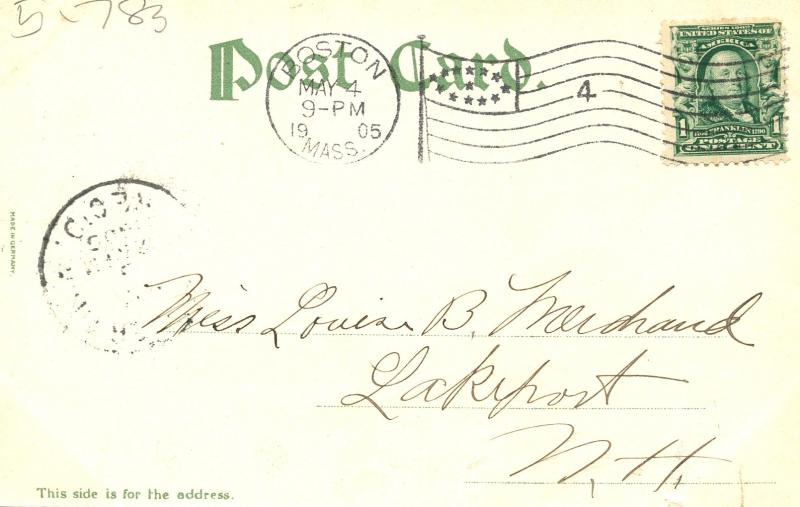 5-783
Post Card.
BOSTON
MAY 4
9-PM
19 05
MASS.
4
SERIES 1902
UNITED STATES OF
AMERICA
1706 FRANKLIN 1790
1 1
POSTAGE
ONE CENT
REC'D.
MADE IN GERMANY.
Miss Louise B. Merchand
Lakeport
N. H.
This side is for the address.